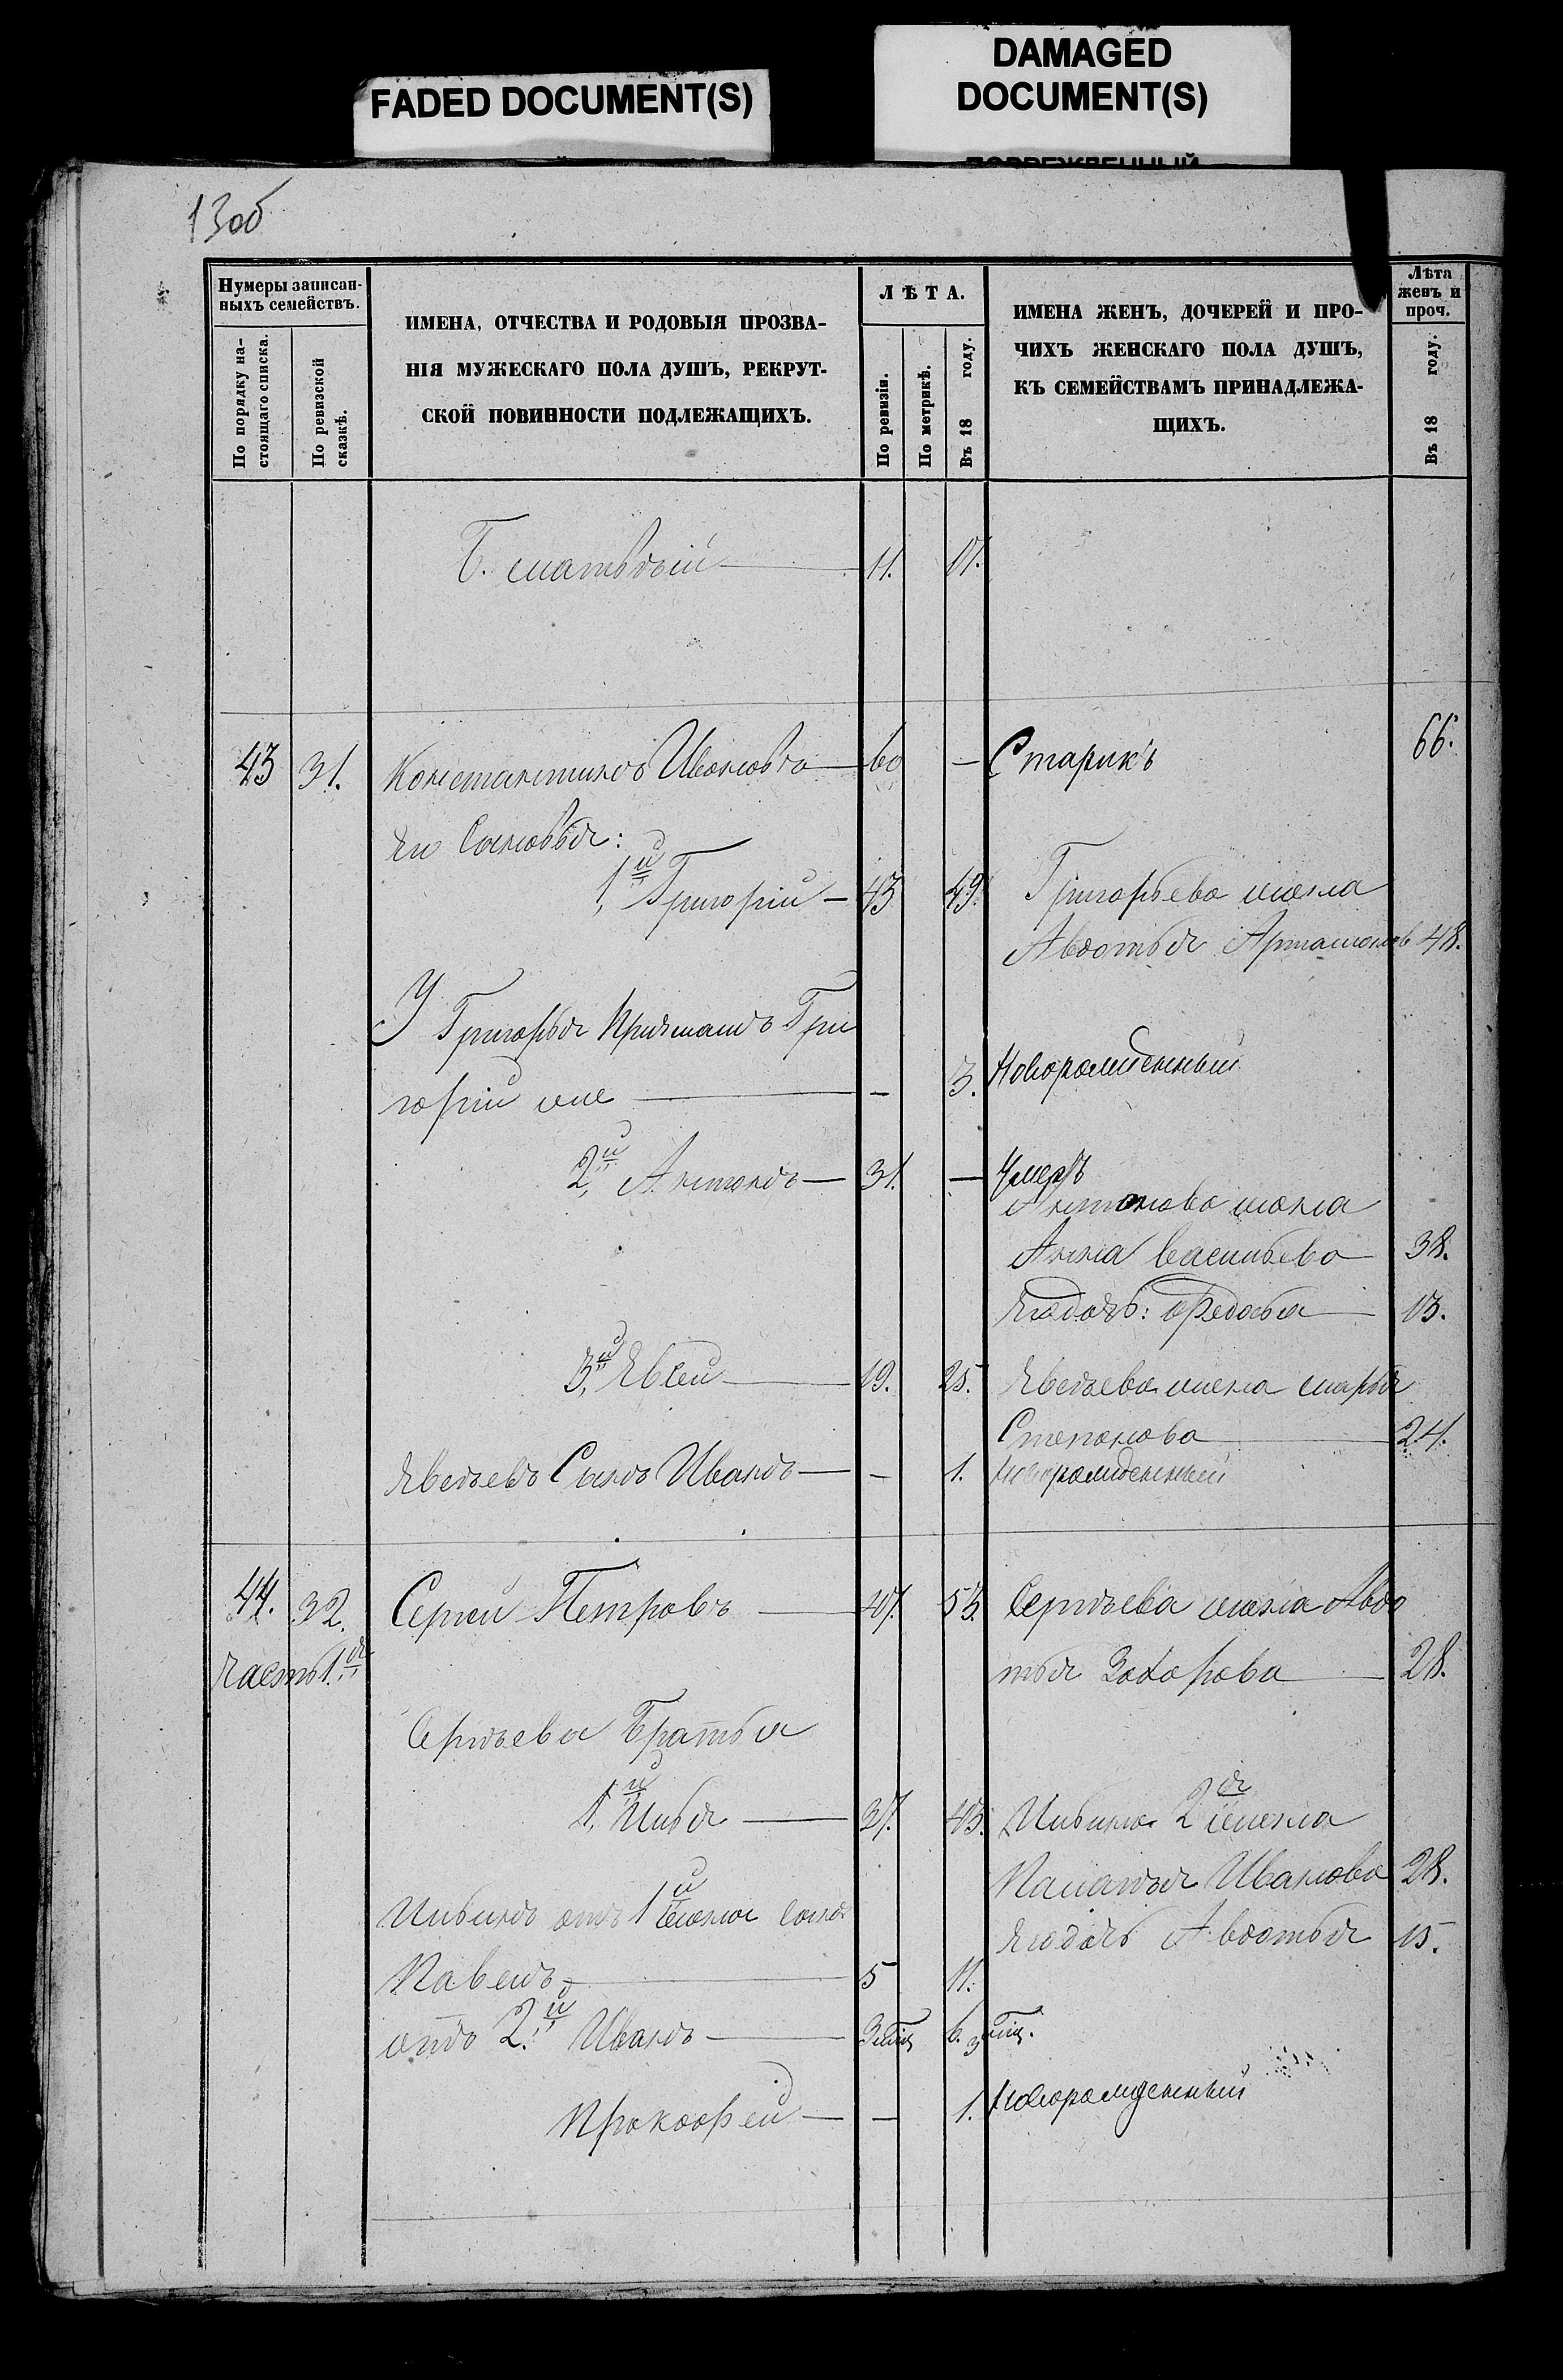 FADED DOCUMENT(S)
DAMAGED
DOCUMENT(S)
13об
Нумеры записан-
ныхъ семействъ.
По порядку на-
стоящаго списка.
По ревизской
сказкѣ.
ИМЕНА, ОТЧЕСТВА И РОДОВЫЯ ПРОЗВА-
НІЯ МУЖЕСКАГО ПОЛА ДУШЪ, РЕКРУТ-
СКОЙ ПОВИННОСТИ ПОДЛЕЖАЩИХЪ.
ЛѢТА.
По ревизіи.
По метрикѣ.
Въ 18 году.
ИМЕНА ЖЕНЪ, ДОЧЕРЕЙ И ПРО-
ЧИХЪ ЖЕНСКАГО ПОЛА ДУШЪ,
КЪ СЕМЕЙСТВАМЪ ПРИНАДЛЕЖА-
ЩИХЪ.
Лѣта
женъ и
проч.
Въ 18 году.
Б. Матвѣй — 11. 17.
43 31. Константинъ Ивановъ — 60 — Старикъ 66.
Его Сыновья:
1й Григорій — 43 49. Григорьева жена
Авдотья Артамонов 48.
У Григорья Приемышъ Гри
горій же — — 3. Новорожденный
2й Антонъ — 31. — Умеръ
Антонова жена
Анна Васильева — 38.
Его дочь: Федосья — 13.
3й Евсей — 19. 25. Евсѣева жена Марья
Степанова — 24.
Евсѣевъ Сынъ Иванъ — — 1. Новорожденный
44. 32. Сергей Петровъ — 47. 53. Сергѣева жена Авдо
часть 1я
тья Захарова — 28.
Сергѣевы Братья
1й Илья — 37. 43. Ильина 2я жена
Иванова 28.
Ильинъ отъ 1й жены сынъ
Его дочь Авдотья 15.
Павелъ — 5 11.
отъ 2й Иванъ — 3 мѣц 6. 3 мѣц.
Прокофей — — 1. Новорожденный